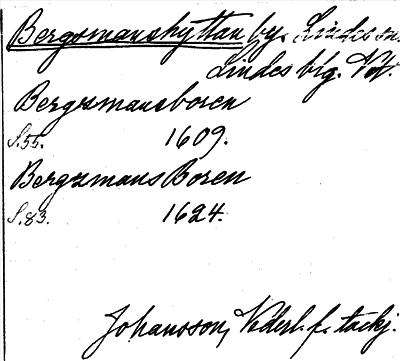 Bergsmanshyttan by. Lindes sn.
Lindes blg. Vstm.
Bergzmansboren
S.55. 1609.
Bergzmans Boren
S.83. 1624.
Johansson, Nederl. f. tackj.